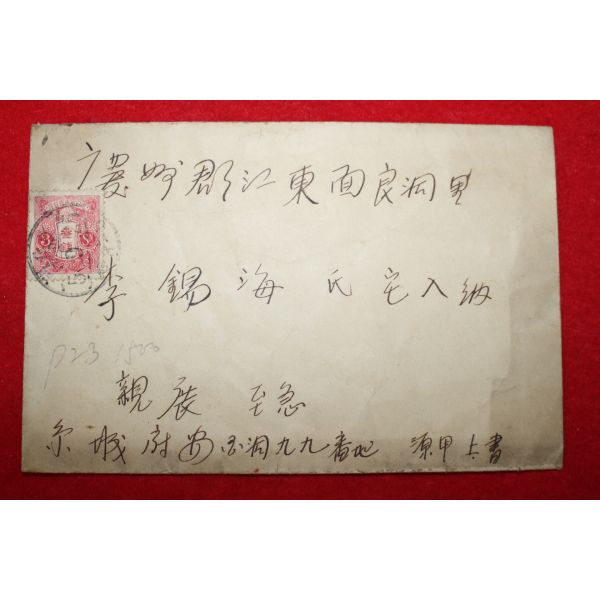 慶州郡江東面良洞里
李錫海氏宅入納
親展 至急
京城府安国洞九九番地 源甲上書
3 参銭
p23 1500